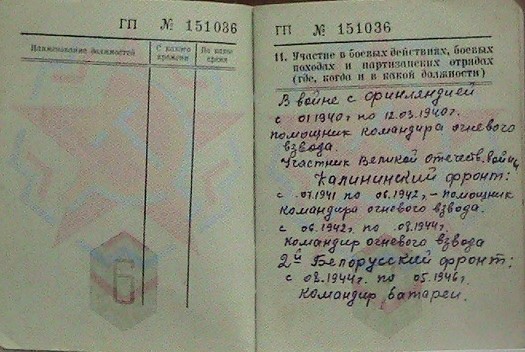 ГП № 151036
Наименование должностей
С какого времени
По какое время
6
ГП № 151036
11. Участие в боевых действиях, боевых
походах и партизанских отрядах
(где, когда и в какой должности)
В войне с Финляндией
с 01.1940г. по 12.03.1940г.
помощник командира огневого
взвода.
Участник Великой отечеств. войны
Калининский фронт:
с .07.1941 по 06.1942г. – помощник
командира огневого взвода.
с 06.1942г. по .08.1944г.
Командир огневого взвода
2й Белорусский фронт:
с 08.1944г. по 05.1946г.
Командир батареи.